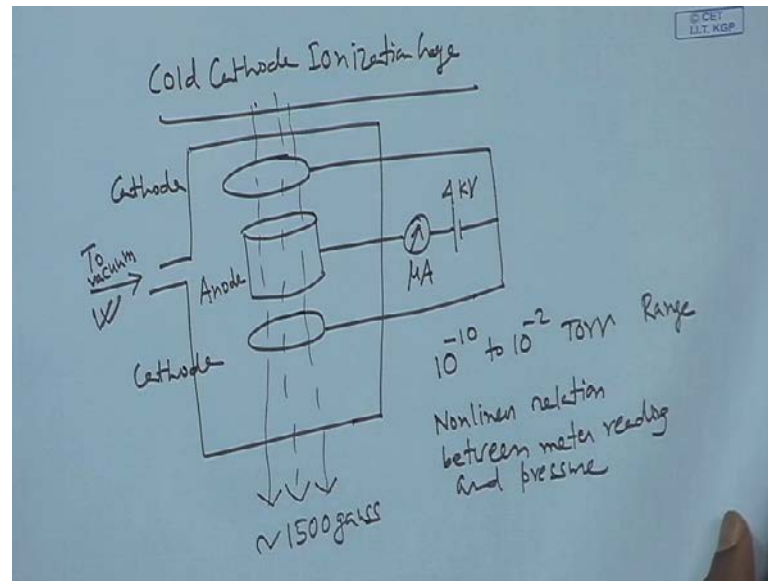 © CET
I.I.T. KGP
Cold Cathode Ionization Gage
Cathode
4 kV
To
vacuum
Anode
μA
Cathode
10⁻¹⁰ to 10⁻² Torr Range
Nonlinear relation
between meter reading
and pressure
~1500 gauss